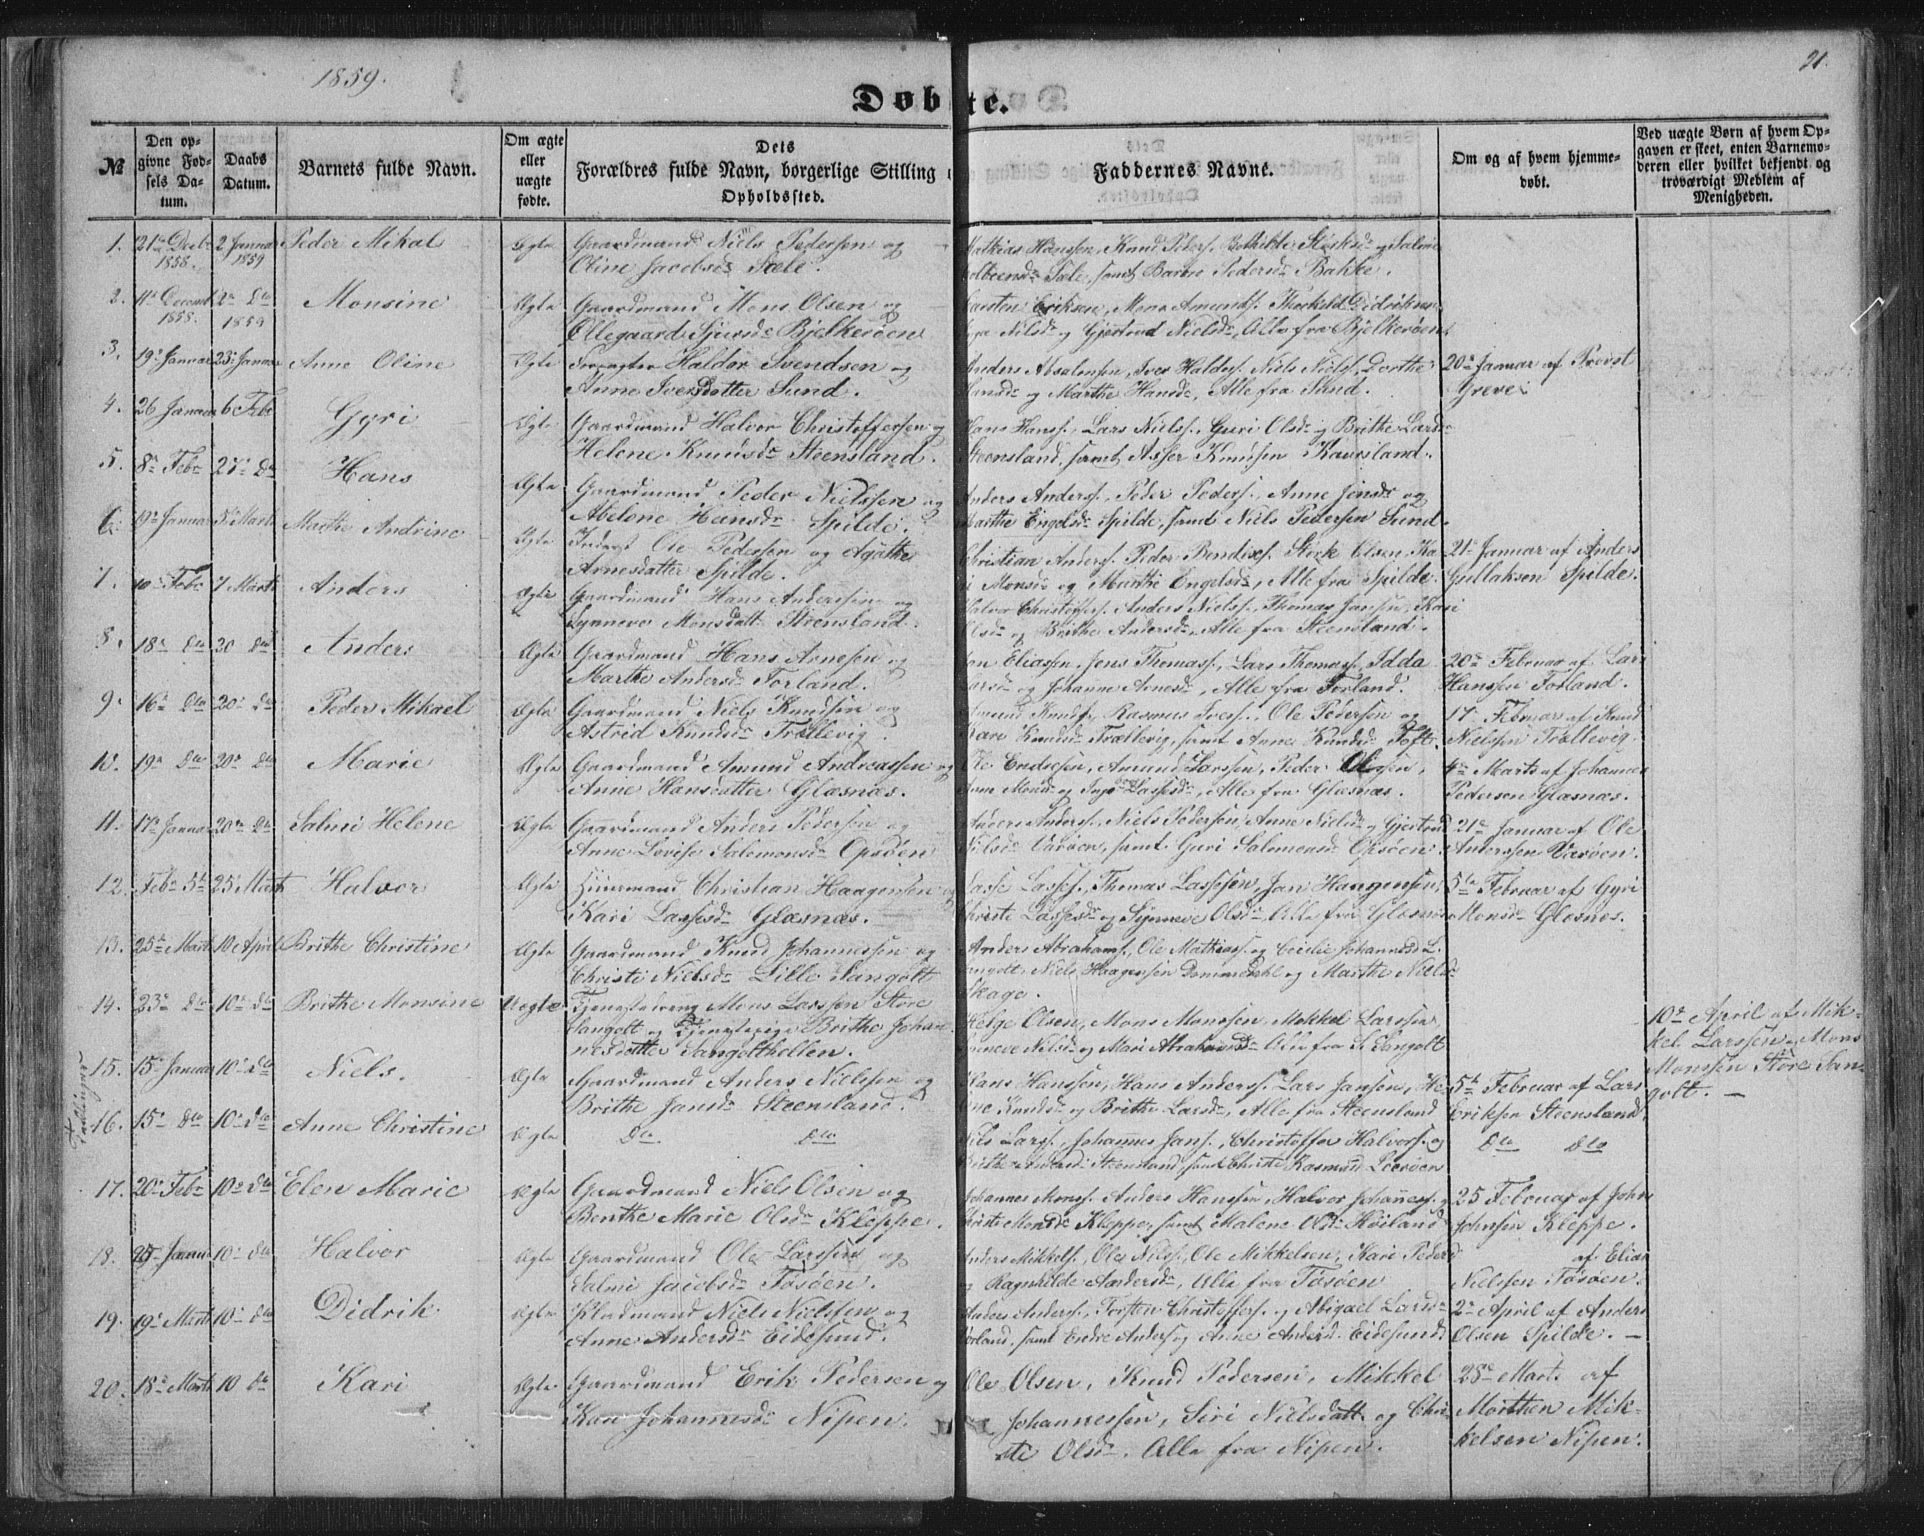 1859.
21.
Døbte.
№
Den opgivne Fødsels Datum.
Daabs Datum.
Barnets fulde Navn.
Om ægte eller uægte fødte.
Dets Forældres fulde Navn, borgerlige Stilling
Opholdssted.
Faddernes Navne.
Om og af hvem hjemmedøbt.
Ved uægte Børn af hvem Opgaven er skeet, enten Barnemoderen eller hvilket bekjendt og troværdigt Medlem af Menigheden.
1. 21 Decbr 1858. 2 Januar 1859 Peder Mikal Ægte Gaardmand Niels Pedersen og
Oline Jacobsdr Sæle.
Mathias Hansen, Knud Peders. Bothilde
Sæle, samt Barbro Pedersdr Bakke.
2. 11 Decemb 1858. 2 Dto 1859 Monsine Ægte Gaardmand Mons Olsen og
Ollegaard Sjursdr Bjelkerøen
Carsten Eriksen, Mons Amunds. Thorkild Didriksen
Nilsdr og Gjertrud Nielsdr, Alle fra Bjelkerøen
3. 19 Januar 23 Januar Anne Oline Ægte Haldor Svendsen og
Anne Iversdatter Sund.
Anders Absalonsen, Iver Halders. Niels Niels. Dorthe
Hansdr og Marthe Hansdr, Alle fra Sund.
20 Januar af Provst
Greve.
4. 26 Januar 6 Febr Gyri Ægte Gaardmand Halvor Christoffersen og
Helene Knudsdr Steensland.
Hans Hanss., Lars Nielss., Guri Olsdr og Brithe Larsdr
Steensland, samt Asser Knudsen Kausland.
5. 8 Febr 27 Dto Hans Ægte Gaardmand Peder Nielssen og
Abelone Hansdr Spilde.
Anders Anders., Peder Peders., Anne Jensdr og
Marthe Engelsdr Spilde, samt Niels Pedersen Sund.
6. 19 Januar 5 Marts Marthe Andrine Ægte Inderst Ole Pedersen og Agathe
Arnesdatter Spilde.
Christian Anders. Peder Bendixs. Stork Olsen, Ka-
ri Monsdr og Marthe Engelsdr, Alle fra Spilde.
21 Januar af Anders
Gullaksen Spilde.
7. 10 Febr 7 Marts Anders Ægte Gaardmand Hans Anderssen og
Synneve Monsdatt. Steensland.
Halvor Christoffers. Anders Niels., Thomas Jansen, Kari
Olsdr og Brithe Andersdr, Alle fra Steensland.
8. 18 Dto 20 Dto Anders Ægte Gaardmand Hans Arnesen og
Marthe Andersdr Forland.
Jon Eliassen, Jens Thomass., Lars Thomass., Idda
Larsdr og Johanne Arnesdr, Alle fra Forland.
20 Februar af Lars
Hanssen Forland.
9. 16 Dto 20 Dto Peder Mikael Ægte Gaardmand Niels Knudsen og
Astrid Knudsdr Trøllevig.
Amund Knuds., Rasmus Ivers., Ole Pedersen og
Kari Knudsdr Trællevig, samt Anne Knudsdr Tofte.
17 Februar af Knud
Nielssen Trøllevig.
10. 19 Dto 20 Dto Marie Ægte Gaardmand Amund Andreassen og
Anne Hansdatter Glæsnæs.
Ole Endresen, Amund Larssen, Peder Olssen,
Anne Monsdr og Lassesdr, Alle fra Glæsnæs.
4 Marts af Johannes
Pedersen Glæsnæs.
11. 17 Januar 20 Dto Salmi Helene Ægte Gaardmand Anders Pedersen og
Anne Lovise Salemonsdr Opsøen
Anders Anders., Niels Pedersen, Anne Nielsdr og Gjertrud
Nielsdr Værøen, samt Guri Salomonsdr Opsøen.
21 Januar af Ole
Anderssen Værøen.
12. Febr 5 25 Marts Halvor Ægte Huusmand Christian Haagensen og
Kari Lassesdr Glæsnæs.
Lasse Lasses., Thomas Lassesen, Jan Haagensen,
Christi Lassesdr og Synneve Olsdr, Alle fra Glæsnæs
5te Februar af Gyri
Monsdr Glæsnæs.
13. 25 Marts 10 April Brithe Christine Ægte Gaardmand Knud Johannessen og
Christi Nielsdr Lille Sangolt
Anders Abrahams., Ole Mathiass. og Cecilie Johannesdr L.
Sangolt, Niels Haagensen og Marthe Nielsdr
Skage.
14. 23 Dto 10 Dto Brithe Monsine Uægte Tjenestedreng Mons Larssen Store
Sangolt og Tjenestepige Brithe Johan-
nesdatter Sangolthellen.
Helge Olsen, Mons Monssen, Mekkel Larssen,
Synneve Nielsdr og Mari Abrahamsdr Alle fra S. Sangolt
10 April af Mik-
kel Larssen og Mons
Monssen Store San-
golt. —
Tvillinger
15. 15 Januar 10 Dto Niels. Ægte Gaardmand Anders Nielssen og
Brithe Jansdr Steensland.
Hans Hanssen, Hans Anders. Lars Jansen, He-
lene Knudsdr og Brithe Larsdr, Alle fra Steensland
5 Februar af Lars
Eriksen Steensland,
16. 15 Dto 10 Dto Anne Christine Ægte Dto Dto
Nils Larss., Johannes Jans., Christoffer Halvors. og
Brithe Andersdr Steensland, samt Christi Rasmusd Leerøen
Dto Dto
17. 20 Febr 10 Dto Elen Marie Ægte Gaardmand Niels Olsen og
Benthe Marie Olsdr Kleppe.
Johannes Mons., Anders Hanssen, Halvor Johanness. og
Christi Monsdr Kleppe, samt Malene Olsdr Høiland
25 Februar af John
Johnsen Kleppe.
18. 25 Januar 10 Dto Halvor Ægte Gaardmand Ole Larssen og
Salmi Jacobsdr Tøsøen.
Anders Mikkels., Ole Nilss. Ole Mikkelsen, Kari Pedersd
og Ragnhilde Andersdr, Alle fra Tøsøen
af Elias
Nielssen Tøsøen.
19. 19 Marts 10 Dto Didrik Ægte Niels Nielssen og
Anne Andersdr Eidesund.
Anders Anders., Torsten Christoffers. og Abigael Larsdr
Forland, samt Endre Anders og Anne Andersd. Eidesund
2 April af Anders
Olsen Spilde. —
20. 18 Marts 10 Dto Kari Ægte Gaardmand Erik Pedersen og
Kari Johannesdr Nipen.
Ole Olsen, Knud Pedersen, Mikkel
Johannessen, Siri Nielsdatt. og Chri-
sti Olsdr. Alle fra Nipen.
28 Marts af
Morthen Mik-
kelsen Nipen.